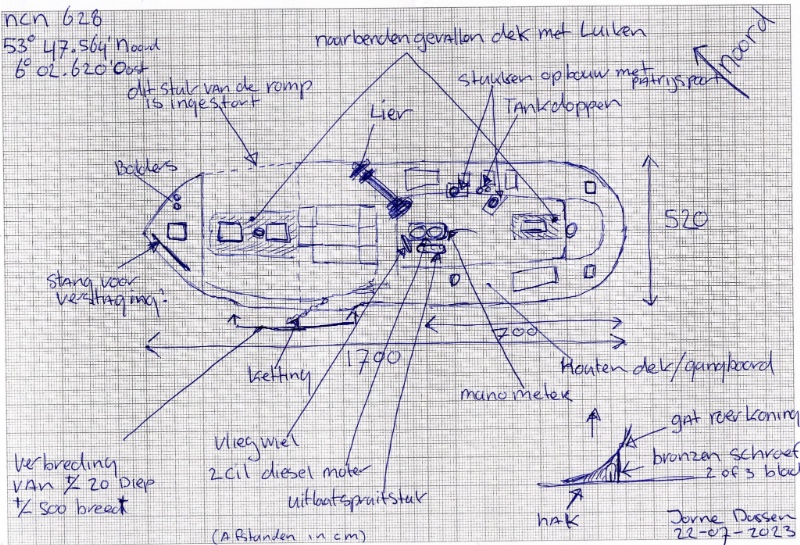 ncn 628
53° 47.564' Noord
6° 02.620' Oost
dit stuk van de romp
is ingestort
naar benden gevallen dek met Luiken
stukken opbouw met
patrijspoort
Tankdoppen
Noord
Lier
Bolders
520
stang voor
verstaging?
700
1700
ketting
Houten dek/gangboord
manometer
vliegwiel
2 cil diesel moter
uitlaatspruitstuk
verbreding
van +/- 20 Diep
+/- 500 breedt
gat roerkoning
bronzen schroef
2 of 3 blad
hak
(Afstanden in cm)
Jorne Dussen
22-07-2023